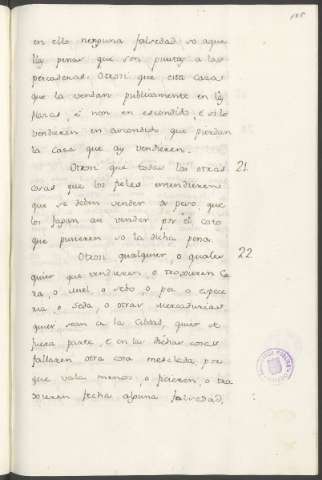 en ello ninguna falsedad so aque
llas penas que son puestas a las
pescaderas. Otrosi que esta casas
que la vendan publicamente en las
plazas, e non en escondido, e si lo
vendieren en ascondido que pierdan
la casa que ay vendieren.
Otrosi que todas las otras 21
cosas que los fieles entendieren
que se deben vender a peso que
los fagan asi vender por el coto
que pusieren so la dicha pena.
Otrosi qualquier, o quales 22
quier que vendieren o troxieren Ce
ra, o miel, o sebo, o pez o especie
ria, o seda, o otras mercadurias
quier sean en la Cibdad, quier de
fuera parte, e en las dichas cosas
fallaren otra cosa mesclada por
que vala menos, o ficieren, o tra
xieren fecha alguna falsedad,